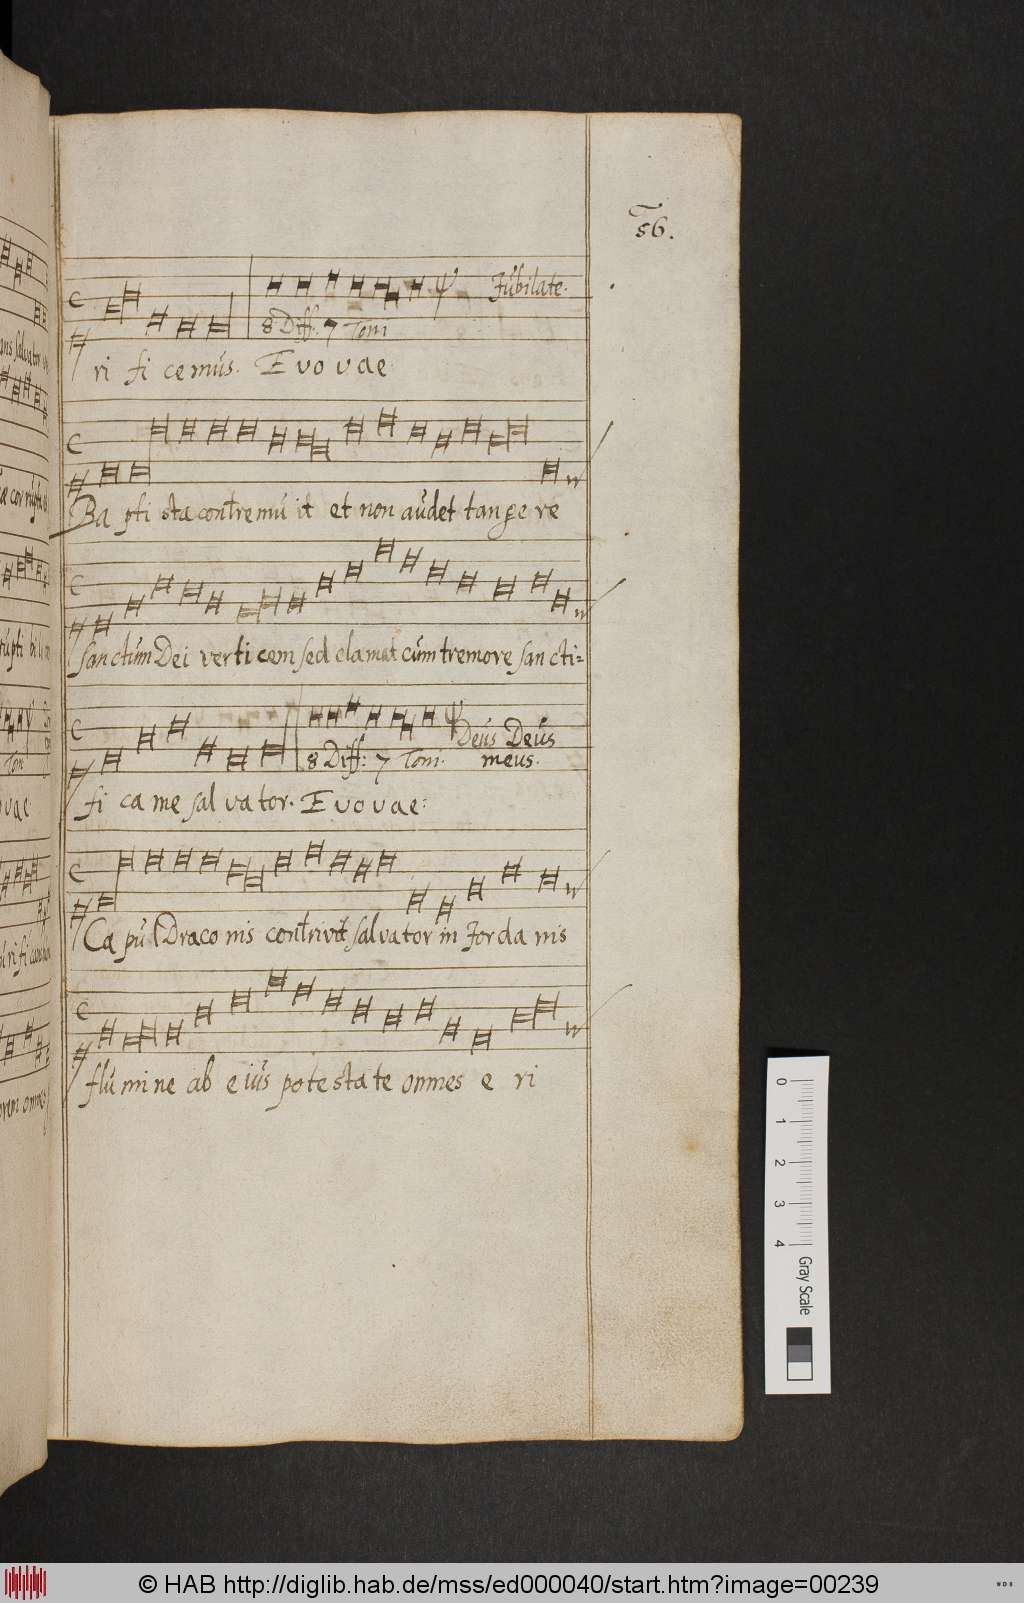 56.
Jubilate.
8 Diff. 7 Toni
ri fi ce mus. E vo vae
Ba pti sta contre mu it et non audet tan ge re
San ctum Dei verti cem sed clamat cum tremore San cti=
Deus Deus
8 Diff: 7 Toni. meus.
fi ca me sal va tor. E vo vae:
Ca put Draco nis contrivit salvator in Jor da nis
flu mi ne ab e ius po te sta te omnes e ri
0 1 2 3 4 Gray Scale
© HAB http://diglib.hab.de/mss/ed000040/start.htm?image=00239